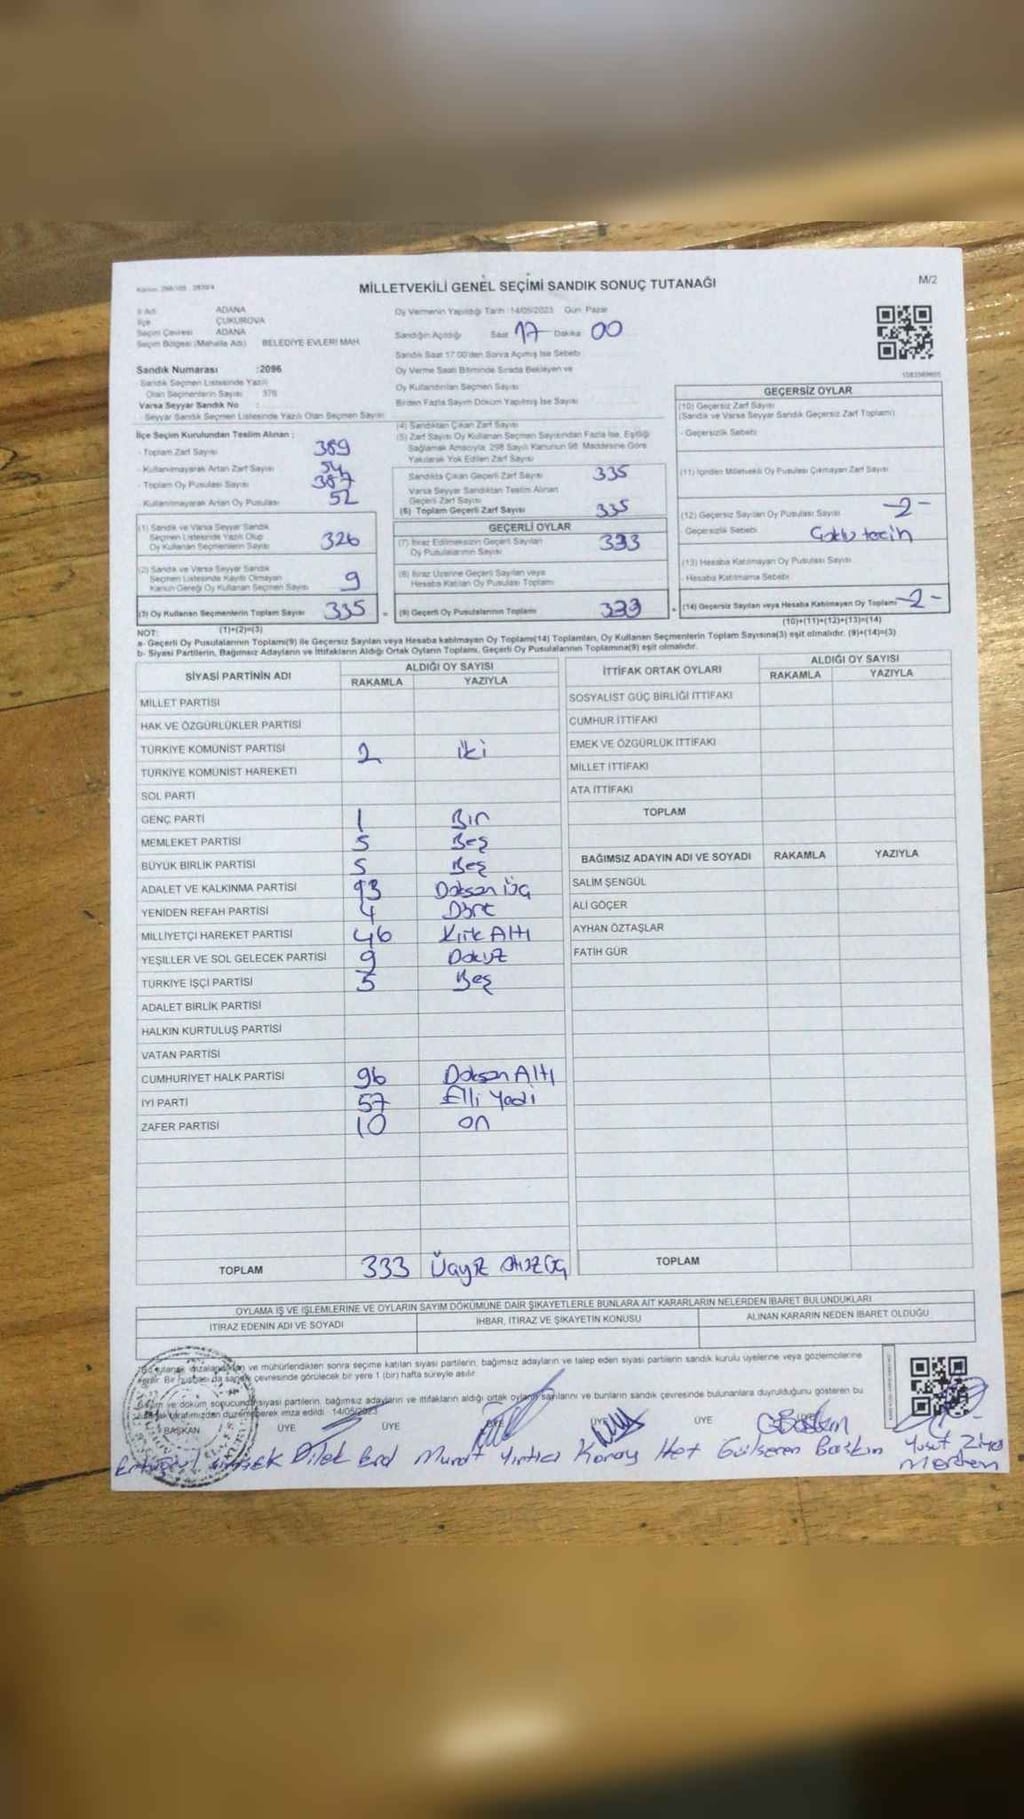 MİLLETVEKİLİ GENEL SEÇİMİ SANDIK SONUÇ TUTANAĞI
M/2
İl Adı ADANA
İlçe ÇUKUROVA
Seçim Çevresi ADANA
Seçim Bölgesi (Mahalle Adı) BELEDİYE EVLERİ MAH.
Oy Vermenin Yapıldığı Tarih :14/05/2023 Gün: Pazar
Sandığın Açıldığı Saat 17 Dakika 00
Sandık Saat 17.00'den Sonra Açılmış İse Sebebi
Oy Verme Saati Bitiminde Sırada Bekleyen ve
Oy Kullandırılan Seçmen Sayısı
Birden Fazla Sayım Döküm Yapılmış İse Sayısı
Sandık Numarası :2096
Sandık Seçmen Listesinde Yazılı
Olan Seçmenlerin Sayısı 376
Varsa Seyyar Sandık No :
Seyyar Sandık Seçmen Listesinde Yazılı Olan Seçmen Sayısı
İlçe Seçim Kurulundan Teslim Alınan :
- Toplam Zarf Sayısı 389
- Kullanılmayarak Artan Zarf Sayısı 54
- Toplam Oy Pusulası Sayısı 387
- Kullanılmayarak Artan Oy Pusulası 52
(1) Sandık ve Varsa Seyyar Sandık
Seçmen Listesinde Yazılı Olup
Oy Kullanan Seçmenlerin Sayısı 326
(2) Sandık ve Varsa Seyyar Sandık
Seçmen Listesinde Kayıtlı Olmayan
Kanun Gereği Oy Kullanan Seçmen Sayısı 9
(3) Oy Kullanan Seçmenlerin Toplam Sayısı 335
(1)+(2)=(3)
(4) Sandıktan Çıkan Zarf Sayısı
(5) Zarf Sayısı Oy Kullanan Seçmen Sayısından Fazla İse, Eşitliği
Sağlamak Amacıyla, 298 Sayılı Kanunun 98. Maddesine Göre
Yakılarak Yok Edilen Zarf Sayısı
Sandıkta Çıkan Geçerli Zarf Sayısı 335
Varsa Seyyar Sandıktan Teslim Alınan
Geçerli Zarf Sayısı
(6) Toplam Geçerli Zarf Sayısı 335
GEÇERLİ OYLAR
(7) İtiraz Edilmeksizin Geçerli Sayılan
Oy Pusulalarının Sayısı 333
(8) İtiraz Üzerine Geçerli Sayılan veya
Hesaba Katılan Oy Pusulası Toplamı
= (9) Geçerli Oy Pusulalarının Toplamı 333
GEÇERSİZ OYLAR
(10) Geçersiz Zarf Sayısı
(Sandık ve Varsa Seyyar Sandık Geçersiz Zarf Toplamı)
- Geçersizlik Sebebi
(11) İçinden Milletvekili Oy Pusulası Çıkmayan Zarf Sayısı
(12) Geçersiz Sayılan Oy Pusulası Sayısı -2-
Geçersizlik Sebebi Çoklu tercih
(13) Hesaba Katılmayan Oy Pusulası Sayısı
- Hesaba Katılmama Sebebi
+ (14) Geçersiz Sayılan veya Hesaba Katılmayan Oy Toplamı -2-
(10)+(11)+(12)+(13)=(14)
NOT:
a- Geçerli Oy Pusulalarının Toplamı(9) ile Geçersiz Sayılan veya Hesaba katılmayan Oy Toplamı(14) Toplamları, Oy Kullanan Seçmenlerin Toplam Sayısına(3) eşit olmalıdır. (9)+(14)=(3)
b- Siyasi Partilerin, Bağımsız Adayların ve İttifakların Aldığı Ortak Oyların Toplamı, Geçerli Oy Pusulalarının Toplamına(9) eşit olmalıdır.
SİYASİ PARTİNİN ADI ALDIĞI OY SAYISI
RAKAMLA YAZIYLA
MİLLET PARTİSİ
HAK VE ÖZGÜRLÜKLER PARTİSİ
TÜRKİYE KOMÜNİST PARTİSİ 2 iki
TÜRKİYE KOMÜNİST HAREKETİ
SOL PARTİ
GENÇ PARTİ 1 Bir
MEMLEKET PARTİSİ 5 Beş
BÜYÜK BİRLİK PARTİSİ 5 Beş
ADALET VE KALKINMA PARTİSİ 93 Doksan Üç
YENİDEN REFAH PARTİSİ 4 Dört
MİLLİYETÇİ HAREKET PARTİSİ 46 Kırk Altı
YEŞİLLER VE SOL GELECEK PARTİSİ 9 Dokuz
TÜRKİYE İŞÇİ PARTİSİ 5 Beş
ADALET BİRLİK PARTİSİ
HALKIN KURTULUŞ PARTİSİ
VATAN PARTİSİ
CUMHURİYET HALK PARTİSİ 96 Doksan Altı
İYİ PARTİ 57 Elli Yedi
ZAFER PARTİSİ 10 on
TOPLAM 333 Üçyüz otuz üç
İTTİFAK ORTAK OYLARI ALDIĞI OY SAYISI
RAKAMLA YAZIYLA
SOSYALİST GÜÇ BİRLİĞİ İTTİFAKI
CUMHUR İTTİFAKI
EMEK VE ÖZGÜRLÜK İTTİFAKI
MİLLET İTTİFAKI
ATA İTTİFAKI
TOPLAM
BAĞIMSIZ ADAYIN ADI VE SOYADI RAKAMLA YAZIYLA
SALİM ŞENGÜL
ALİ GÖÇER
AYHAN ÖZTAŞLAR
FATİH GÜR
TOPLAM
OYLAMA İŞ VE İŞLEMLERİNE VE OYLARIN SAYIM DÖKÜMÜNE DAİR ŞİKAYETLERLE BUNLARA AİT KARARLARIN NELERDEN İBARET BULUNDUKLARI
İTİRAZ EDENİN ADI VE SOYADI İHBAR, İTİRAZ VE ŞİKAYETİN KONUSU ALINAN KARARIN NEDEN İBARET OLDUĞU
ve mühürlendikten sonra seçime katılan siyasi partilerin, bağımsız adayların ve talep eden siyasi partilerin sandık kurulu üyelerine veya gözlemcilerine
Bir nüshası da sandık çevresinde görülecek bir yere 1 (bir) hafta süreyle asılır
ve döküm sonucunda siyasi partilerin, bağımsız adayların ve ittifakların aldığı ortak oyların sayılarını ve bunların sandık çevresinde bulunanlara duyrulduğunu gösteren bu
tarafımızdan düzenlenerek imza edildi. 14/05/2023
BAŞKAN ÜYE ÜYE ÜYE ÜYE ÜYE
Dilek Murat Yırtıcı Koray Gülseren Baskın Yusuf Ziya